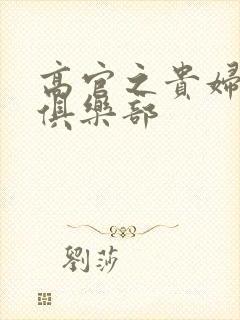 高官之貴婦
俱樂部
劉莎